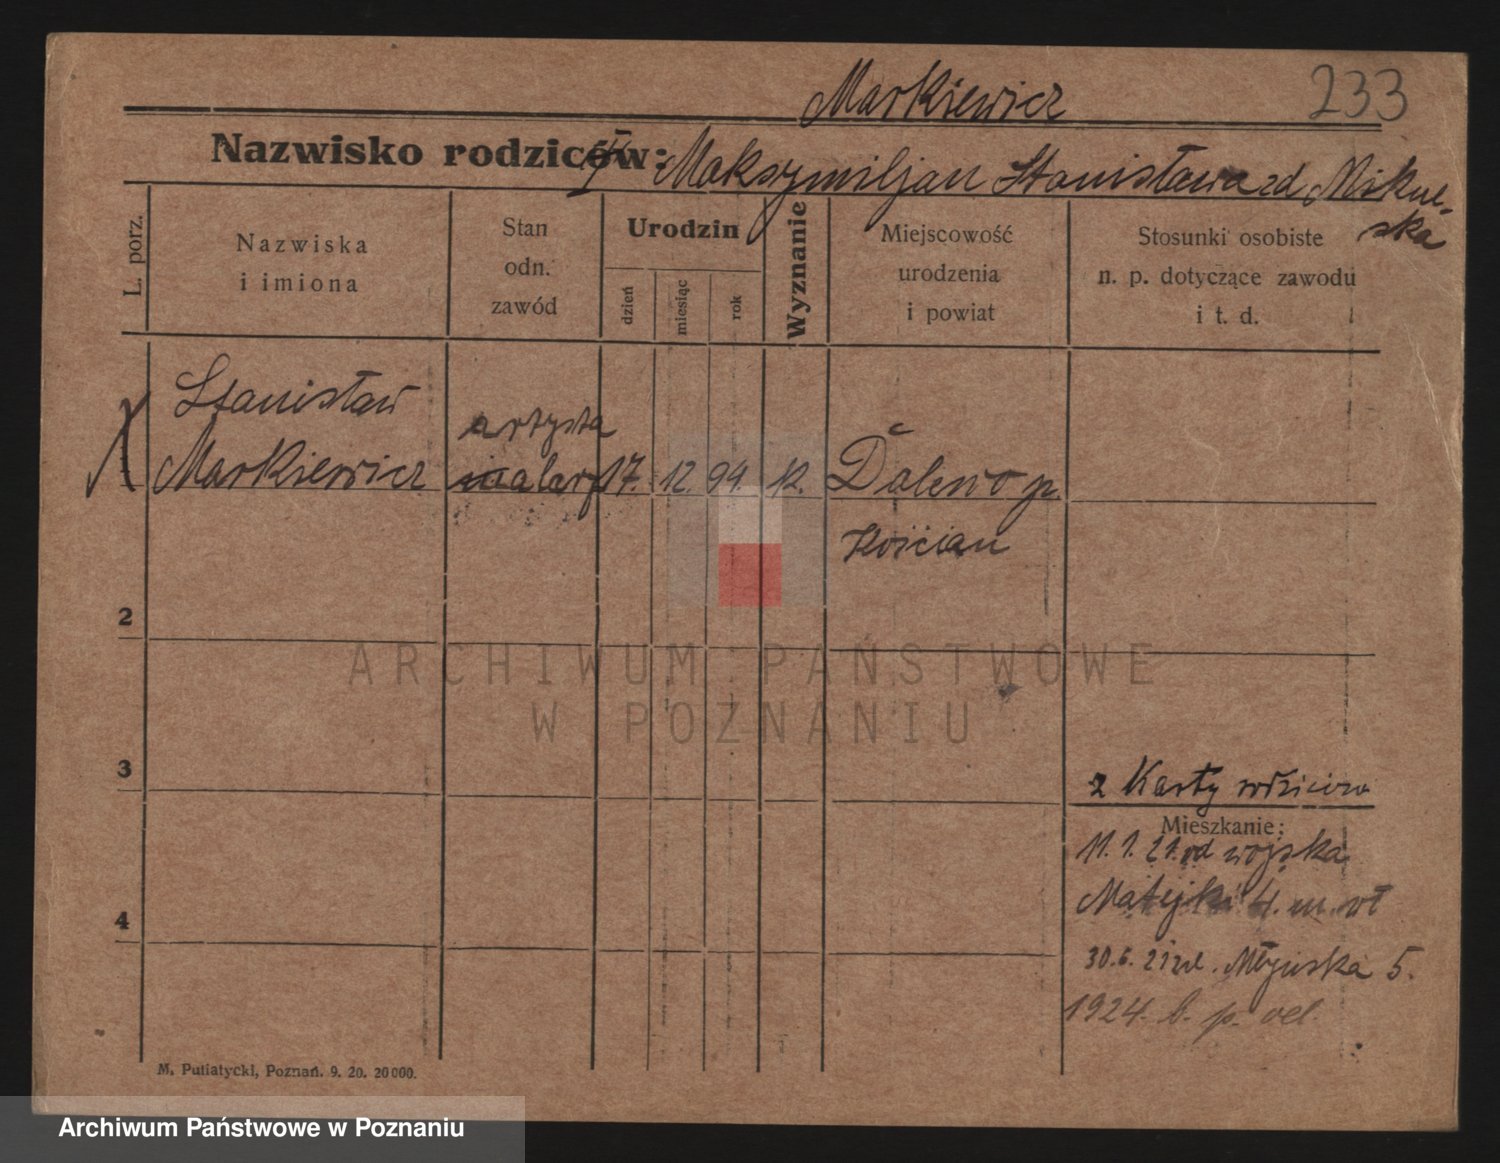 Markiewicz
233
Nazwisko rodziców: Maksymiljan Stanisława zd Mikul-
ska
L. porz.
Nazwiska
i imiona
Stan
odn.
zawód
Urodzin
dzień
miesiąc
rok
Wyznanie
Miejscowość
urodzenia
i powiat
Stosunki osobiste
n. p. dotyczące zawodu
i t. d.
Stanisław
Markiewicz
artysta
malarz
17. 12. 94. k.
Dalewo p.
Kościan
2
3
4
z Karty rodziców
Mieszkanie:
11. 1. 21. od wojska
Matejki 4. m. vł
30. 6. 21 zd. Młyńska 5.
1924. b. p. vel.
M. Putiatycki, Poznań. 9. 20. 20000.
ARCHIWUM PAŃSTWOWE
W POZNANIU
Archiwum Państwowe w Poznaniu